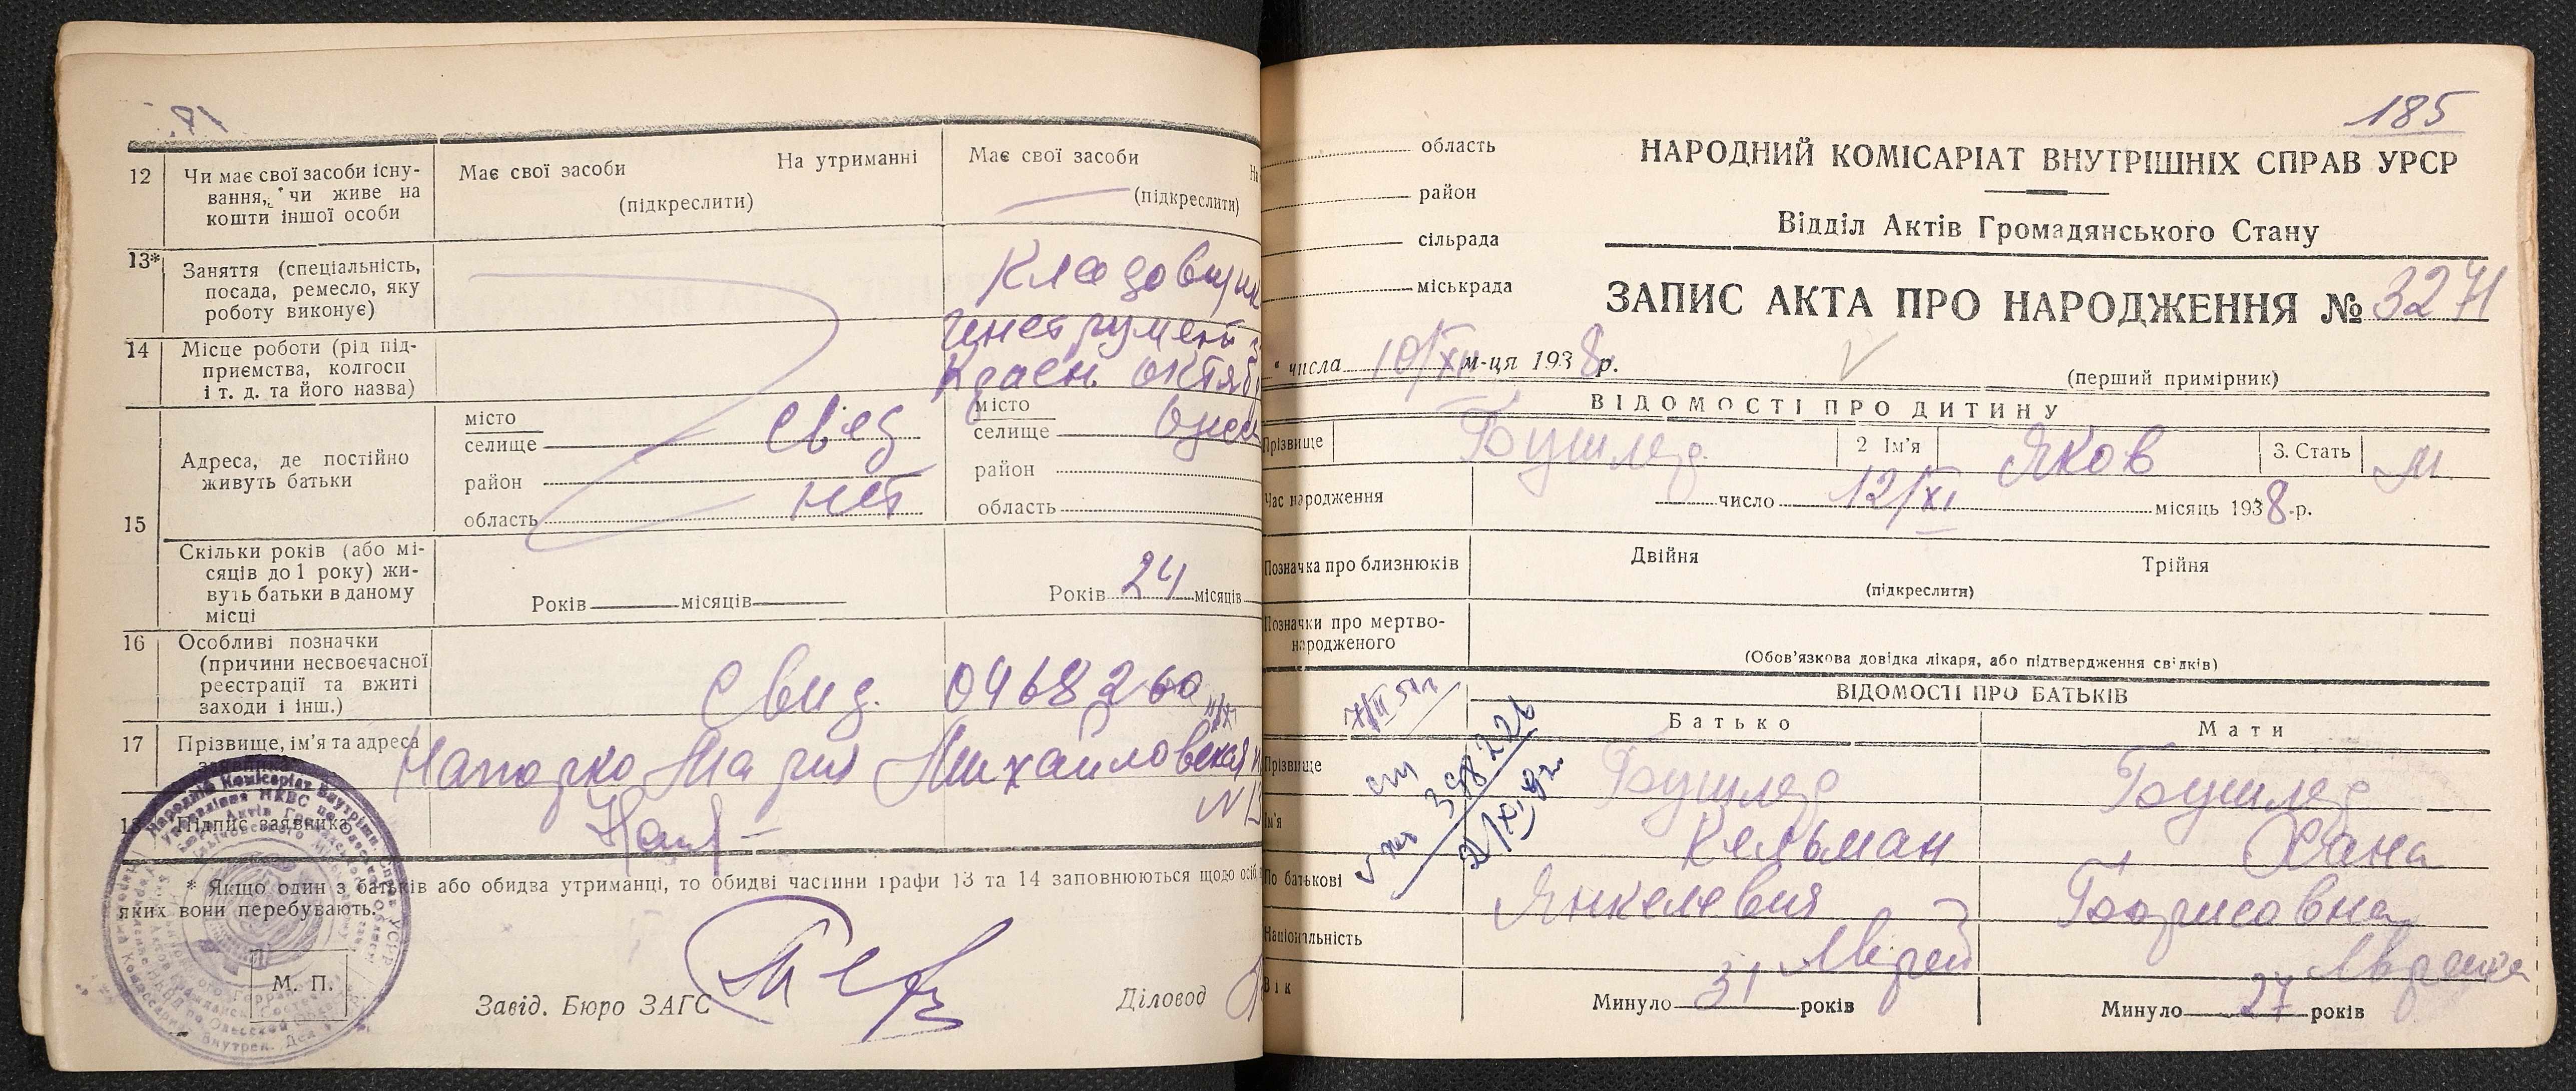 12 Чи має свої засоби існу-
вання, чи живе на
кошти іншої особи
Має свої засоби На утриманні
(підкреслити)
Має свої засоби На
(підкреслити)
13* Заняття (спеціальність,
посада, ремесло, яку
роботу виконує)
14 Місце роботи (рід під-
приємства, колгосп
і т. д. та його назва)
Красн. Октяб
15 Адреса, де постійно
живуть батьки
місто
селище
район
область
свед
нет
місто
селище
район
область
Скільки років (або мі-
сяців до 1 року) жи-
вуть батьки в даному
місці
Років місяців
Років 24 місяців
16 Особливі позначки
(причини несвоєчасної
реєстрації та вжиті
заходи і інш.)
Свид. 0468260
17 Прізвище, ім'я та адреса
заявника
Мария Михайловская
18 Підпис заявника
* Якщо один з батьків або обидва утриманці, то обидві частини графи 13 та 14 заповнюються щодо осіб,
яких вони перебувають.
М. П.
Завід. Бюро ЗАГС
Діловод
185
область
район
сільрада
міськрада
НАРОДНИЙ КОМІСАРІАТ ВНУТРІШНІХ СПРАВ УРСР
Відділ Актів Громадянського Стану
ЗАПИС АКТА ПРО НАРОДЖЕННЯ № 3271
" числа 10/XII м-ця 1938 р.
(перший примірник)
ВІДОМОСТІ ПРО ДИТИНУ
Прізвище Бушлед 2 Ім'я Яков 3. Стать м.
Час народження число 12/XI місяць 1938-р.
Позначка про близнюків Двійня Трійня
(підкреслити)
Позначки про мертво-
народженого
(Обов'язкова довідка лікаря, або підтвердження свідків)
ВІДОМОСТІ ПРО БАТЬКІВ
Батько Мати
Прізвище Бушлед Бушлед
Ім'я Кельман Хана
По батькові Янкелевич Борисовна
Національність Яврей Яврейка
Вік Минуло 31 років Минуло 27 років